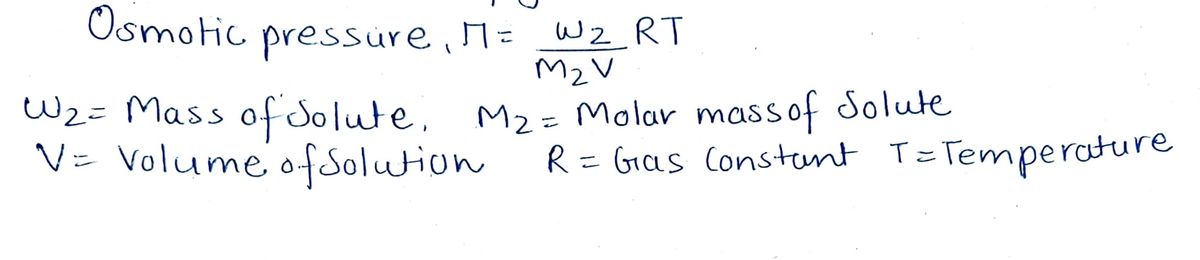 Osmotic pressure, Π = W2 RT
M2V
W2 = Mass of Solute, M2 = Molar mass of Solute
V = Volume of Solution R = Gas Constant T = Temperature